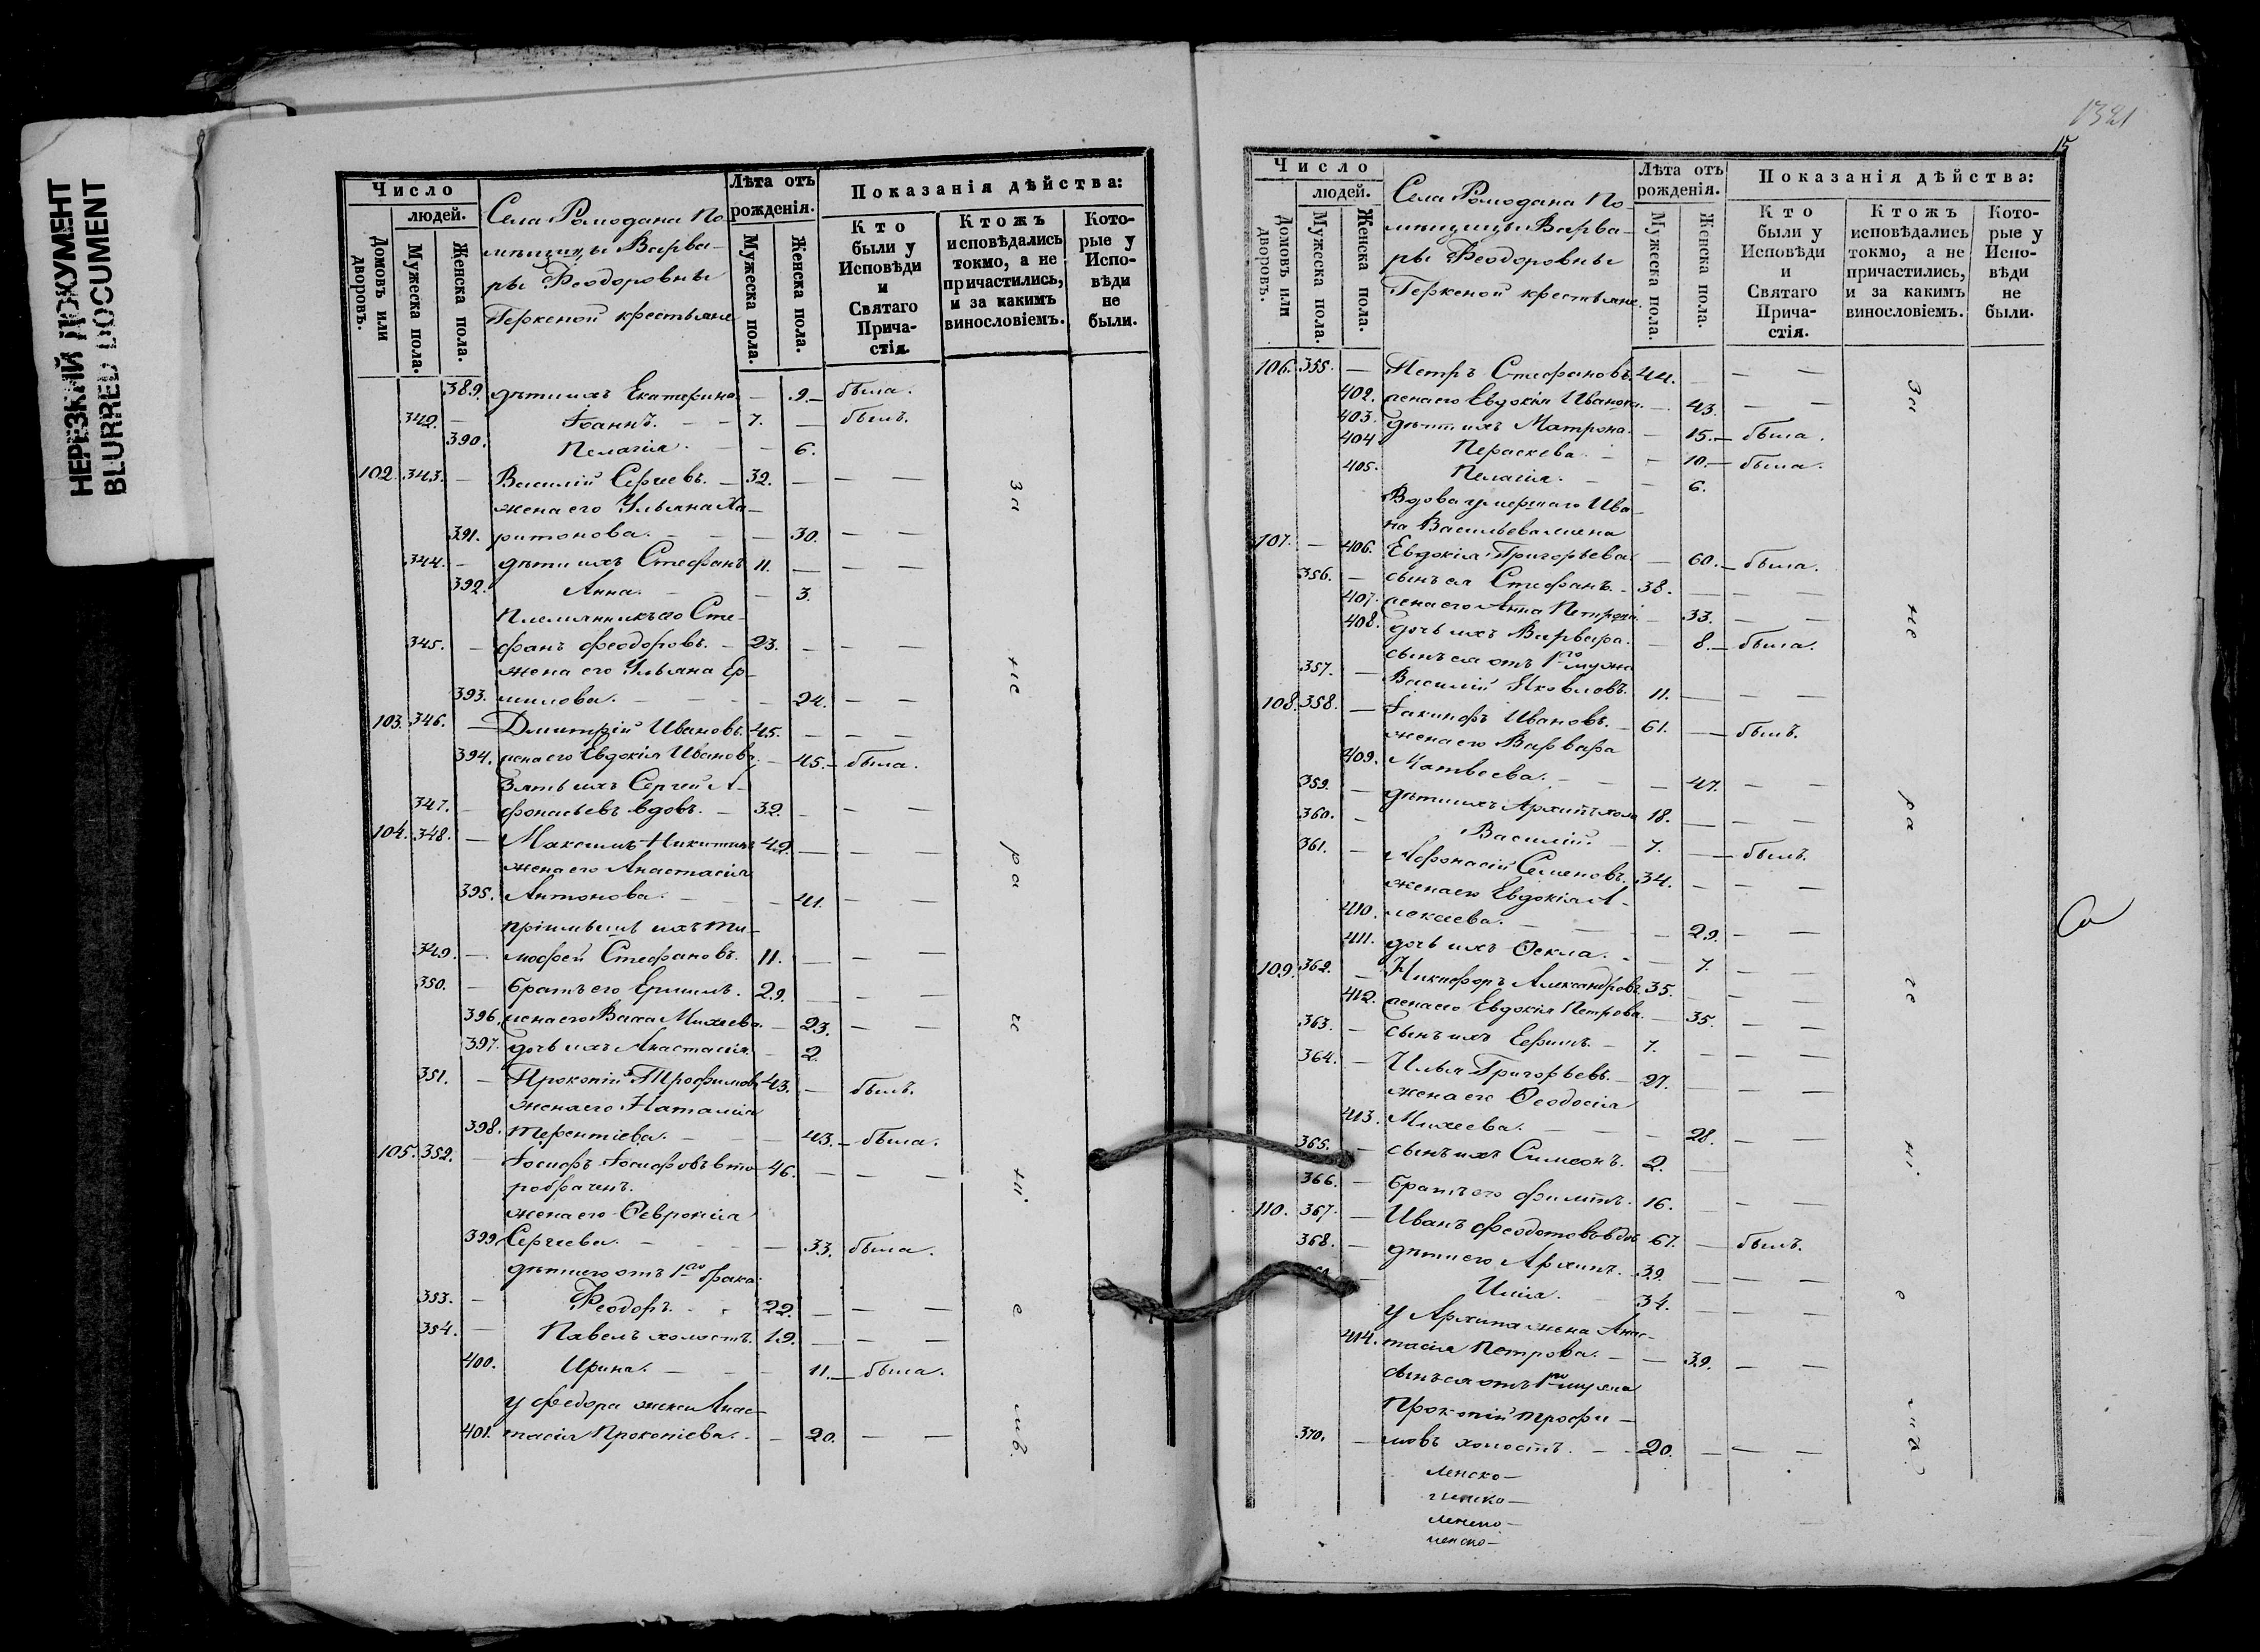 НЕРЕЗКИЙ ДОКУМЕНТ
BLURRED DOCUMENT
Число
людей.
Домовъ или дворовъ.
Мужеска пола.
Женска пола.
Села Ромодана По-
мѣщицы Варва-
ры Феодоровны
Герженой крестьяне
Лѣта отъ рожденія.
Мужеска пола.
Женска пола.
Показанія дѣйства:
Кто были у Исповѣди и Святаго Прича-стія.
Ктожъ исповѣдались токмо, а не причастились, и за какимъ винословіемъ.
Кото-рые у Испо-вѣди не были.
389. дѣти ихъ Екатерина — 9. — была.
342. — Іоаннъ. — — 7. — былъ.
390. Пелагія. — — 6.
102. 343. — Василій Сергеевъ. — 32. — — —
жена его Ульяна Ха-
391. ритонова. — — 30. — —
344. — дѣти ихъ Стефанъ 11. — — —
392. Анна. — — 3.
Племянникъ его Сте-
345. — фанъ Феодоровъ. — 23. — — —
жена его Ульяна Ер-
393. милова. — — — 24. — —
103. 346. — Дмитрій Ивановъ. 45. — — —
394. жена его Евдокія Иванова. — 45. — была.
Зять ихъ Сергей А-
347. — фонасьевъ вдовъ. — 32. — — —
104. 348. — Максимъ Никитинъ 42. — — —
жена его Анастасія
395. Антонова. — — — 41. — —
пріимышъ ихъ Ти-
349. — мофей Стефановъ. 11. — — —
350. — братъ его Ермилъ. 29. — — —
396. жена его Васса Михеева. — 23. — —
397. дочь ихъ Анастасія. — 2.
351. — Прокопій Трофимовъ 43. — былъ.
жена его Наталія
398. Терентіева. — — — 43. — была.
105. 352. — Іосифъ Іосифовъ вто- 46. — — —
робраченъ.
жена его Февронія
399. Сергеева. — — — 33. была.
дѣти его отъ 1го брака
353. — Феодоръ. — 22. — — —
354. — Павелъ холостъ. 19. — — —
400. Ирина. — — — 11. — была.
у Федора жена Анас-
401. тасія Прокопіева. — — 20. — —
за
не
ра
че
ні
е
мъ.
1321
15
Число
людей.
Домовъ или дворовъ.
Мужеска пола.
Женска пола.
Села Ромодана По-
мѣщицы Варва-
ры Феодоровны
Герженой крестьяне.
Лѣта отъ рожденія.
Мужеска пола.
Женска пола.
Показанія дѣйства:
Кто были у Исповѣди и Святаго Прича-стія.
Ктожъ исповѣдались токмо, а не причастились, и за какимъ винословіемъ.
Кото-рые у Испо-вѣди не были.
106. 355. — Петръ Стефановъ. 44. — — —
402. жена его Евдокія Иванова. — 43. — —
403. дѣти ихъ Матрона. — 15. — была.
404. Параскева. — — 10. — была.
405. Пелагія. — — 6.
Вдова умершаго Ива-
на Васильева жена
107. — 406. Евдокія Григорьева. — 60. — была.
356. — сынъ ея Стефанъ. — 38. — — —
407. жена его Анна Петрова. — 33. — —
408. дочь ихъ Варвара. — 8. — была.
сынъ ея отъ 1го мужа
357. — Василій Яковлевъ. 11. — — —
108. 358. — Іакинфъ Ивановъ. — 61. — былъ.
жена его Варвара
409. Матвеева. — — — 47. — —
359. — дѣти ихъ Архипъ холо 18. — — —
360. — Василій. — 7. — былъ.
361. — Афонасій Семеновъ. 34. — — —
жена его Евдокія А-
410. лексеева. — — — 29. — —
411. дочь ихъ Фекла. — — 7. — —
109. 362. — Никифоръ Александровъ. 35. — — —
412. жена его Евдокія Петрова. — 35. — —
363. — сынъ ихъ Ефимъ. — 7. — — —
364. — Илья Григорьевъ. — 27. — — —
жена его Феодосія
413. Михеева. — — — 28. — —
365. — сынъ ихъ Симеонъ. 2. —
366. — братъ его Филипъ. 16. — — —
110. 367. — Иванъ Феодотовъ вдов 67. — былъ.
368. — дѣти его Архипъ. 39. — — —
— Илія. — 34. — — —
у Архипа жена Анас-
414. тасія Петрова. — — 39. — —
сынъ ея отъ 1го мужа
Прокопій Трофи-
370. — мовъ холостъ. — — 20. — — —
за
не
ра
че
ні
е
мъ.